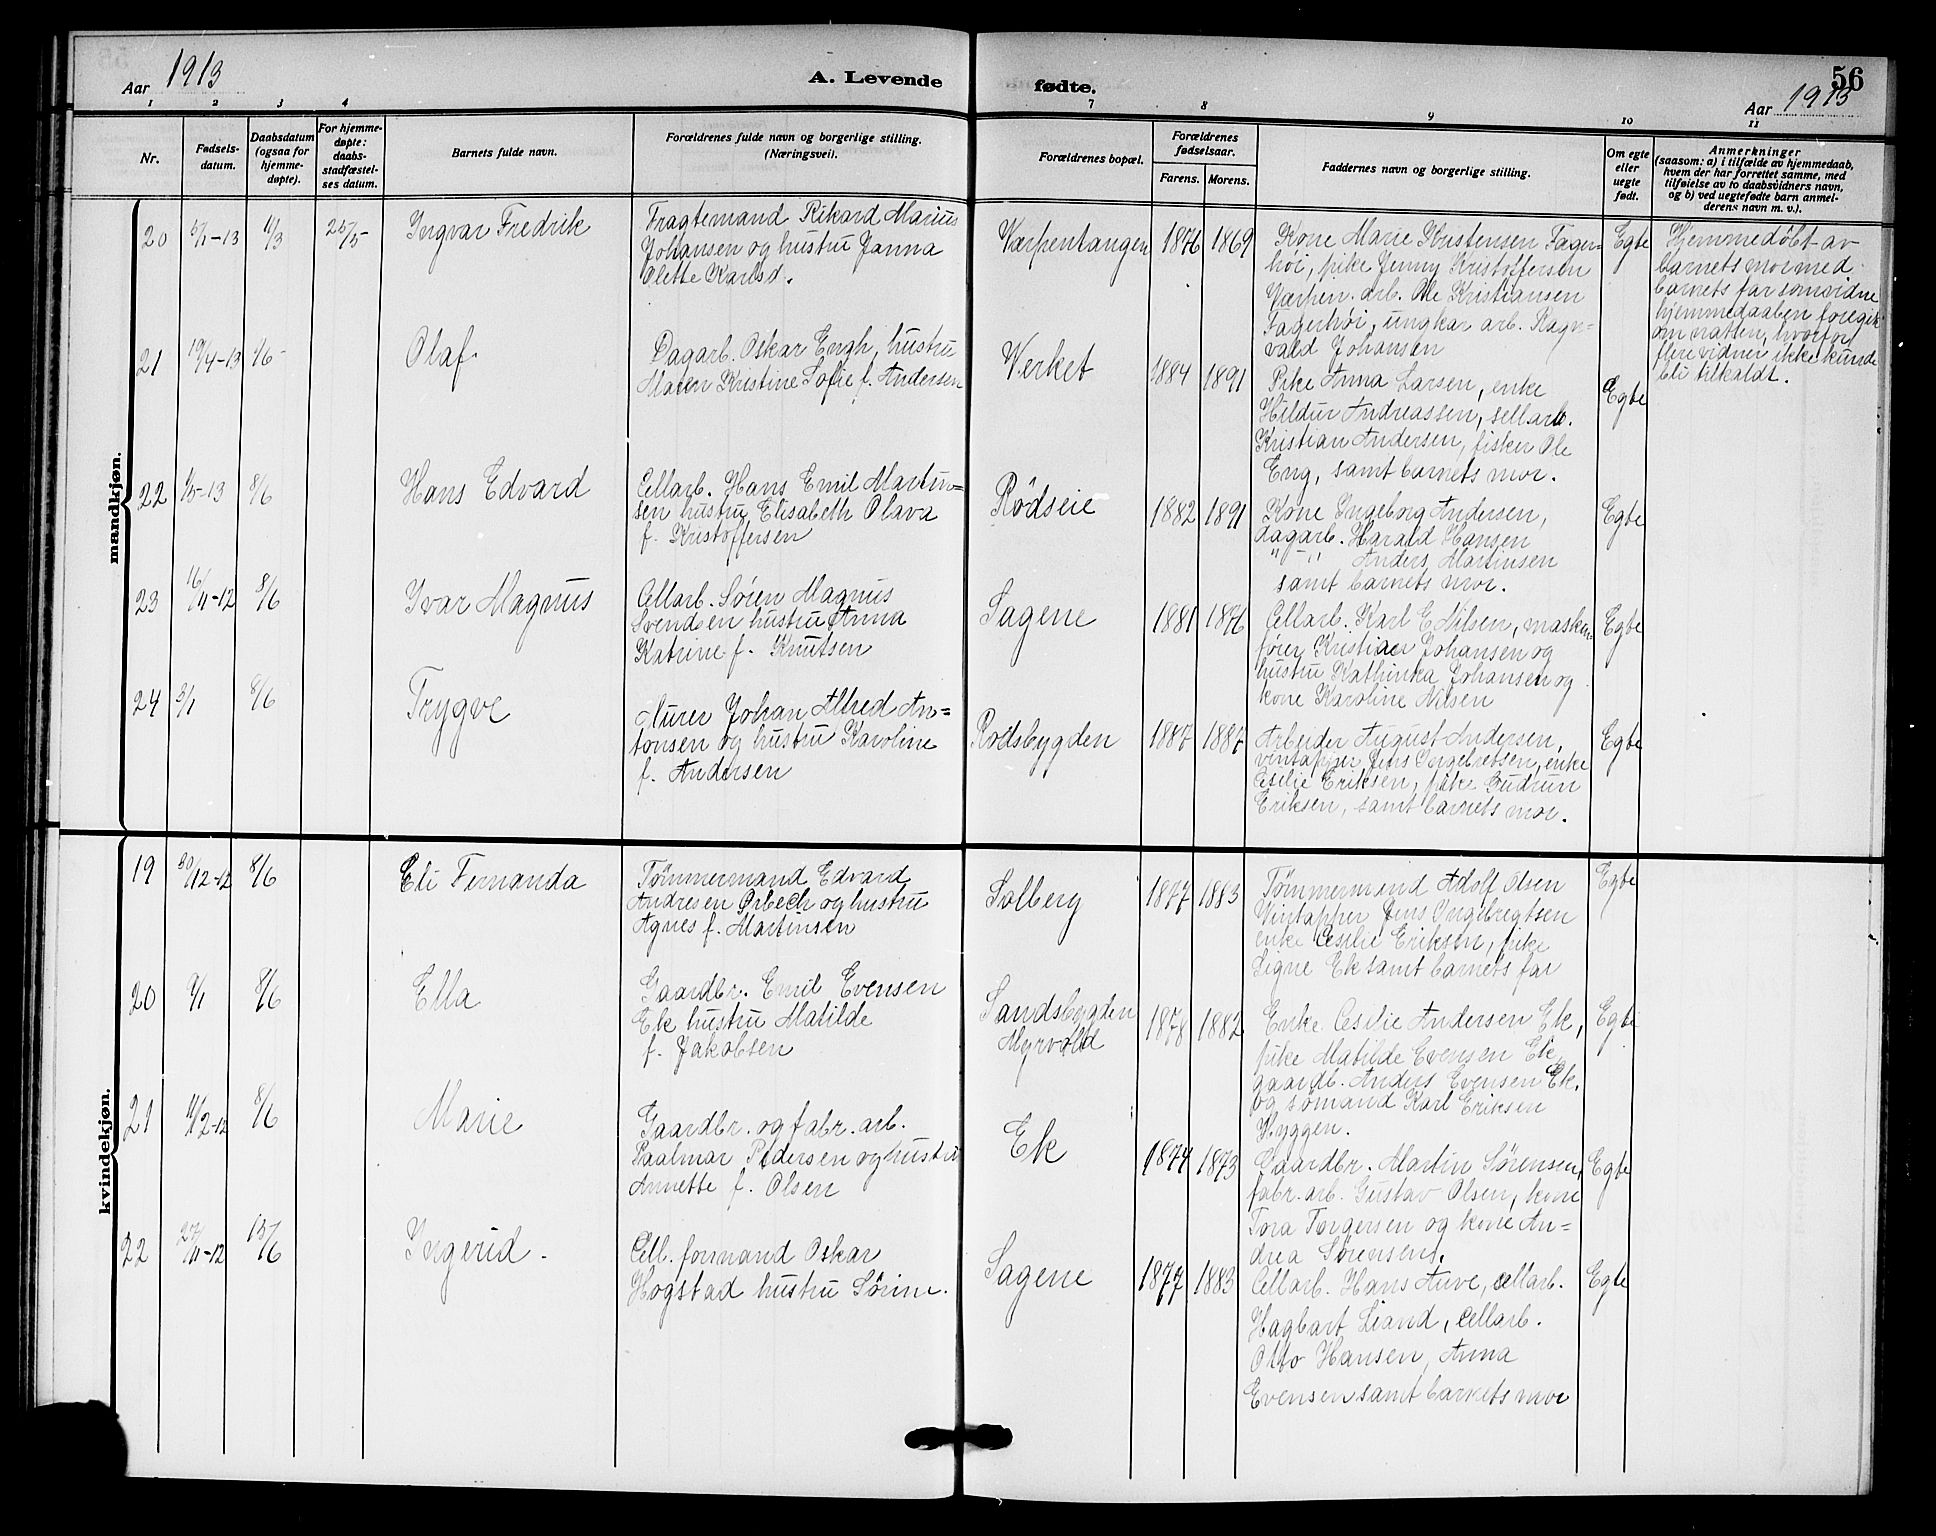 Aar 1913
A. Levende fødte.
56
Aar 1913
1 2 3 4 7 8 9 10 11
Nr.
Fødsels-
datum.
Daabsdatum
(ogsaa for
hjemme-
døpte).
For hjemme-
døpte:
daabs-
stadfæstel-
ses datum.
Barnets fulde navn.
Forældrenes fulde navn og borgerlige stilling.
(Næringsvei).
Forældrenes bopæl.
Forældrenes
fødselsaar.
Farens. Morens.
Faddernes navn og borgerlige stilling.
Om egte
eller
uegte
født.
Anmerkninger
(saasom: a) i tilfælde av hjemmedaab,
hvem der har forrettet samme, med
tilføielse av to daabsvidners navn,
og b) ved uegtefødte barn anmel-
derens navn m. v.).
mandkjøn.
20 5/1-13 4/3 25/5 Ingvar Fredrik
Fragtemand Rikard Marius
Johansen og hustru Janna
Olette Karlsd.
Værpentangen 1876 1869
Kone Marie Kristensen Fager-
høi, pike Jenny Kristoffersen
Værpen. arb. Ole Kristiansen
Fagerhøi, ungkar arb. Ragn-
vald Johansen
Egte
Hjemmedöbt av
barnets mor med
barnets far som vidne
hjemmedaaben foregik
om natten, hvorfor
flere vidner ikke kunde
bli tilkaldt.
21 19/4-13 1/6 Olaf
Dagarb. Oskar Engh, hustru
Maren Kristine Sofie f. Andersen
Verket 1884 1891
Pike Anna Larsen, enke
Hildur Andreassen, sellarb.
Kristian Andersen, fisker Ole
Eng, samt barnets mor.
Egte
22 1/5-13 8/6 Hans Edvard
Cellarb. Hans Emil Martin-
sen hustru Elisabeth Olava
f. Kristoffersen
Rödseie 1882 1891
Kone Ingeborg Andersen,
dagarb. Harald Hansen
" - " Anders Martinsen
samt barnets mor.
Egte
23 16/11-12 8/6 Ivar Magnus
Cellarb. Sören Magnus
Svendsen hustru Anna
Katrine f. Knutsen
Sagene 1881 1876
Cellarb. Karl E Nilsen, maskin-
förer Kristian Johansen og
hustru Kathinka Johansen og
kone Karoline Nilsen
Egte
24 3/1 8/6 Trygve
Murer Johan Alfred An-
tonsen og hustru Karoline
f. Andersen
Rödsbygden 1887 1887
Arbeider August Andersen,
vintapper Jens Ingebretsen, enke
Cesilie Eriksen, pike Gudrun
Eriksen, samt barnets mor.
Egte
kvindekjøn.
19 30/12-12 8/6 Eli Fernanda
Tömmermand Edvard
Andresen Örbech og hustru
Agnes f. Martinsen
Solberg 1877 1883
Tömmermand Adolf Olsen
Vintapper Jens Ingebregtsen
enke Cesilie Eriksen, pike
Signe Ek samt barnets far
Egte
20 9/1 8/6 Ella
Gaardbr. Emil Evensen
Ek hustru Matilde
f. Jakobsen
Sandsbygden
Myrvold 1878 1882
Enke Cesilie Andersen Ek,
pike Matilde Evensen Ek,
gaardb. Anders Evensen Ek.
og sömand Karl Eriksen
Hyggen.
Egte
21 11/2-12 8/6 Marie
Gaardbr. og fabr. arb.
Paalmar Pedersen og hustru
Annette f. Olsen
Ek 1874 1873
Gaardbr. Martin Sörensen,
fabr. arb. Gustav Olsen, kone
Tora Torgersen og kone An-
drea Sörensen.
Egte
22 27/11-12 15/6 Ingerid.
Cell. formand Oskar
Hogstad hustru Sörine.
Sagene 1877 1883
Cellarb. Hans Auve, cellarb.
Hagbart Liand, cellarb.
Otto Hansen, Anna
Evensen samt barnets mor
Egte